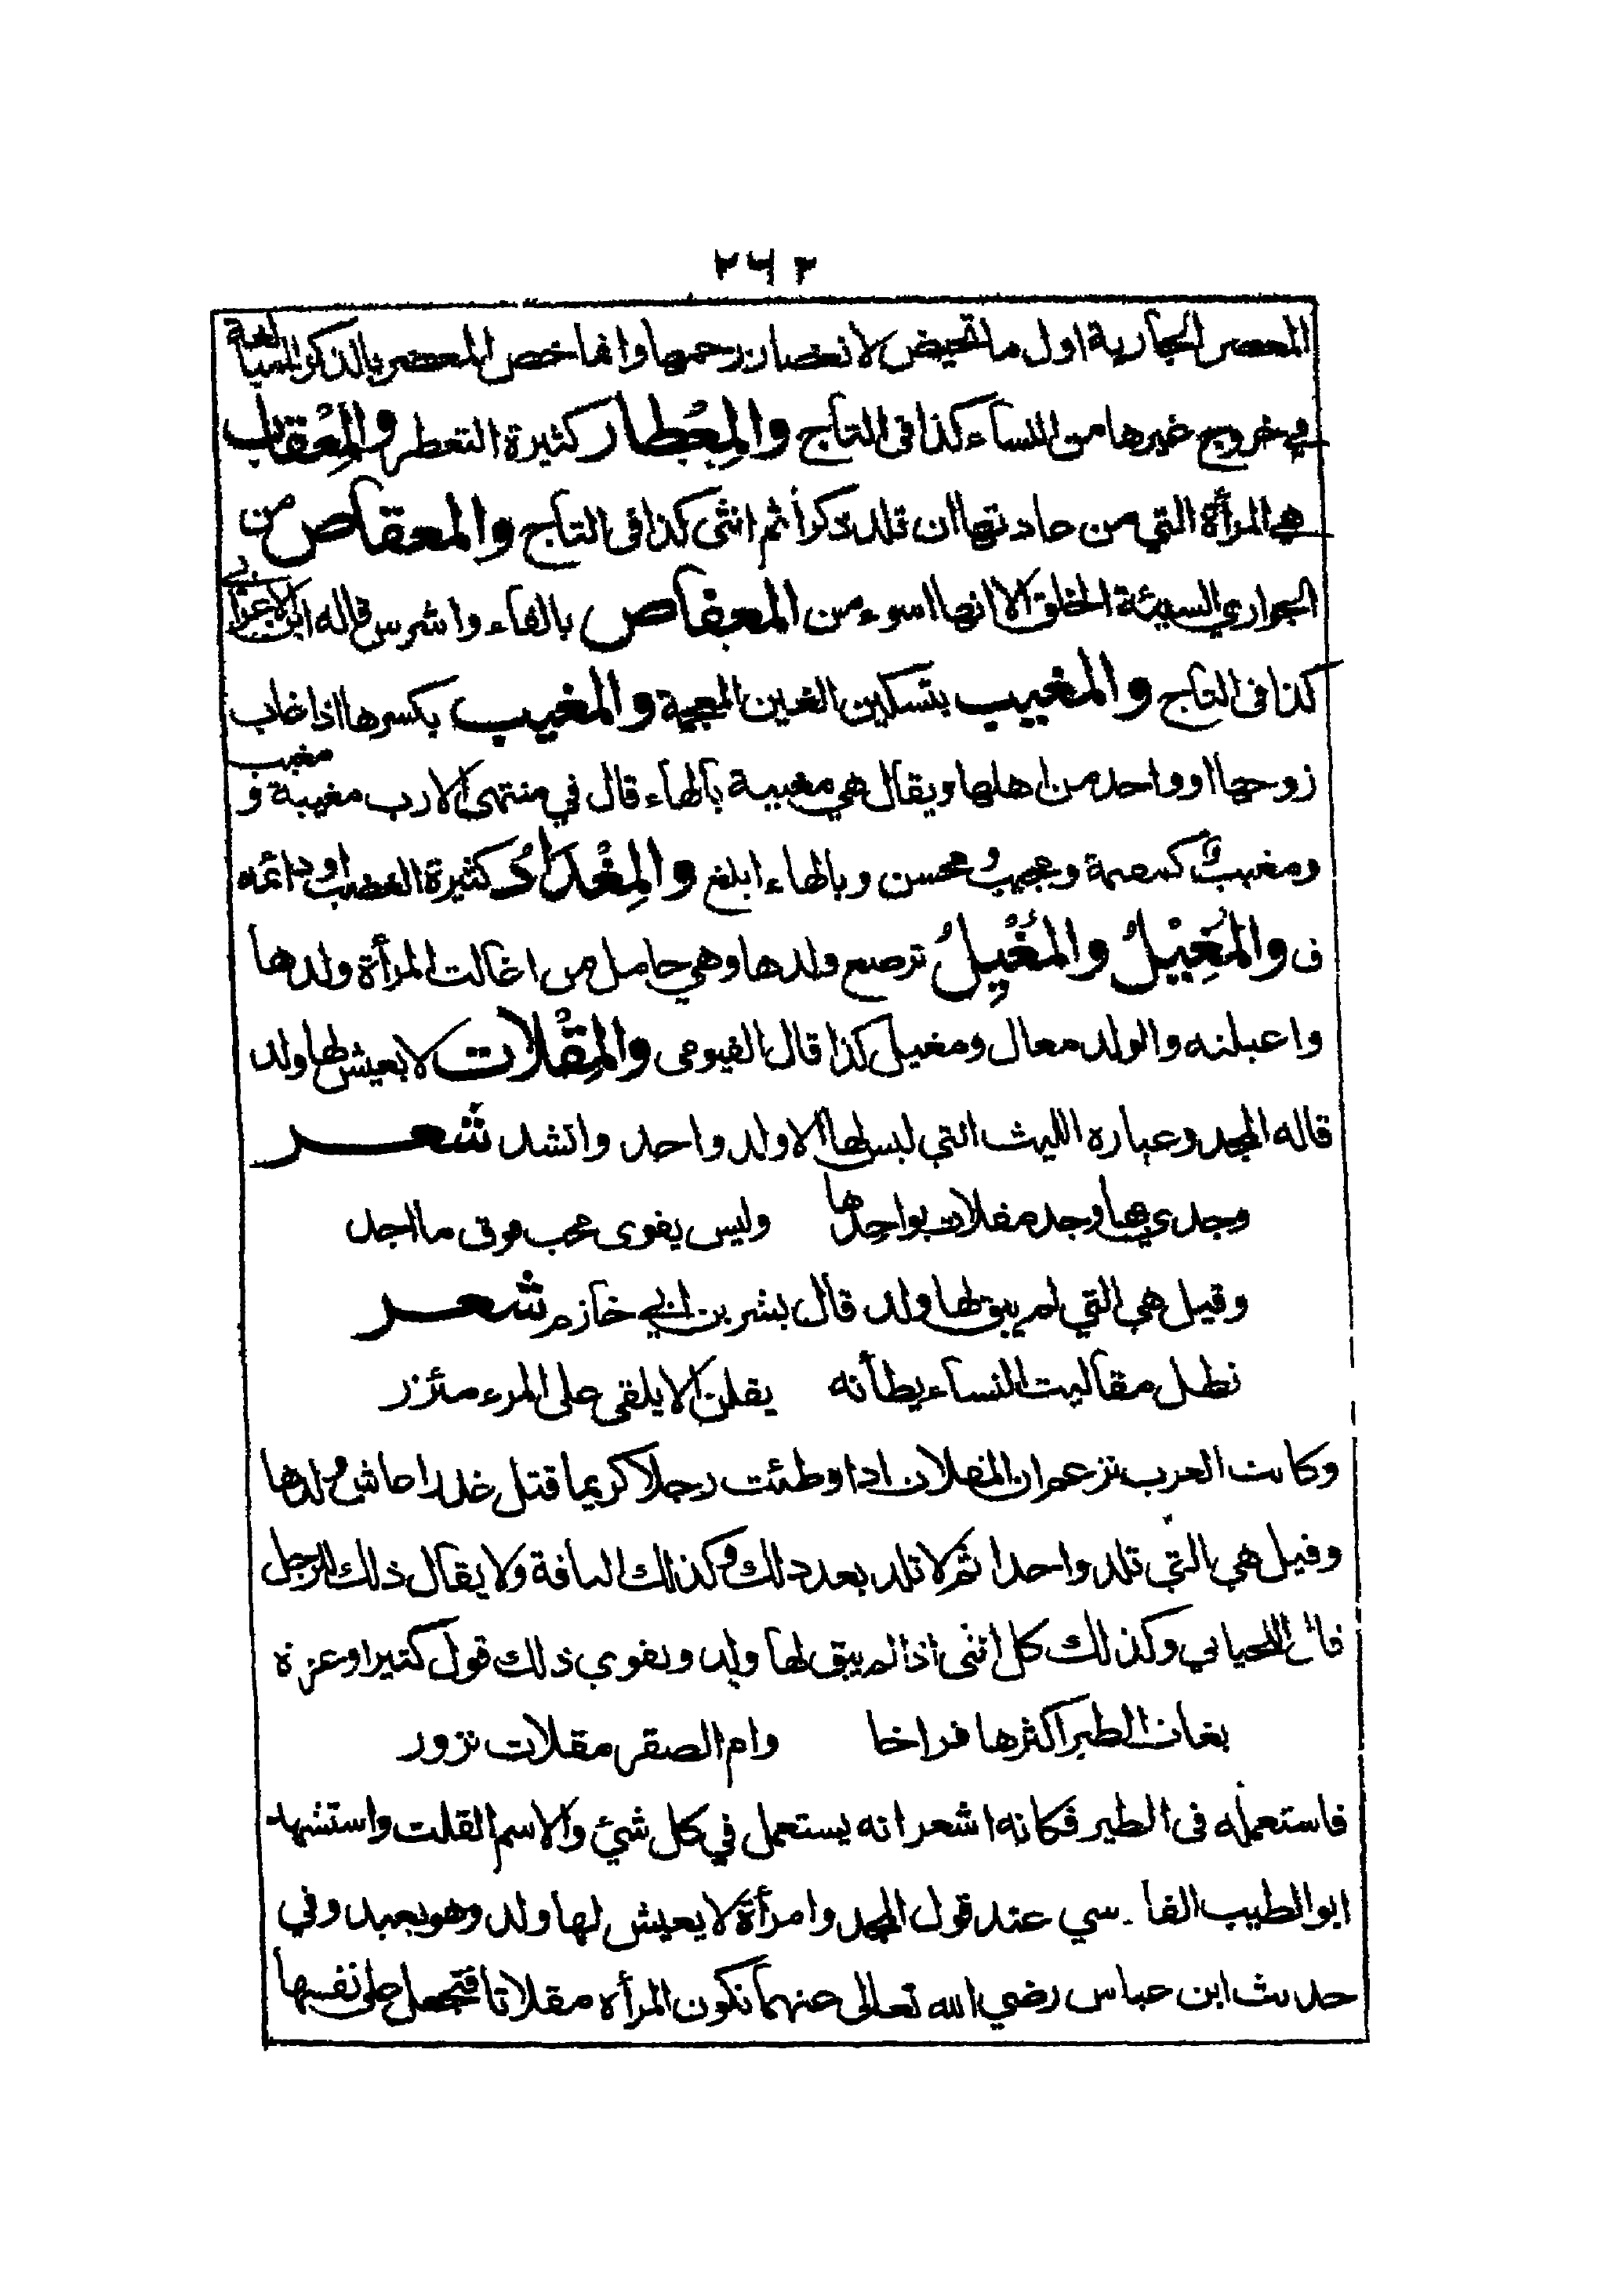 ٢٦٣
المعصر الجارية اول ما تحيض لانعصار رحمها وانما خص المعصر بالذكر للمبالغة
في خروج غيرها من النساء كذا فى التاج والمِعْطار كثيرة التعطر والمِعْقاب
هي المرأة التي من عادتها ان تلد ذكراً ثم انثى كذا فى التاج والمعقاص من
الجواري السيئة الخلق الا انها اسوء من المعفاص بالفاء واشرس قاله ابن الاعرابي
كذا فى التاج والمغيب بتسكين الغين المعجمة والمغيب بكسرها اذا غاب
زوجها او واحد من اهلها ويقال هي مغيبة بالهاء قال في منتهى الارب مغيبة و مغيب
ومغيب كسعمة وعجيب ومحسن وبالهاء ابلغ والمِغْدَادُ كثيرة الغضب او دائمه
ف والمُغِيْلُ والمُغْيِلُ ترضع ولدها وهي حامل من اغالت المرأة ولدها
واغيلته والولد مغال ومغيل كذا قال الفيومى والمِقْلات لا يعيش لها ولد
قاله المجد وعبارة الليث التي ليس لها الا ولد واحد وانشد شعر
وجدي بها وجد مقلات بواحدها وليس يقوى محب فوق ما اجد
وقيل هي التي لم يبق لها ولد قال بشر بن ابي خازم شعر
تظل مقاليت النساء يطأنه يقلن الا يلقى على المرء مئزر
وكانت العرب تزعم ان المقلات اذا وطئت رجلا كريما قتل غدرا عاش ولدها
وقيل هي التي تلد واحدا ثم لا تلد بعد ذلك وكذلك الناقة ولا يقال ذلك للرجل
قال اللحياني وكذلك كل انثى اذا لم يبق لها ولد ويقوي ذلك قول كثير او عزة
بغاث الطير اكثرها فراخا وام الصقر مقلات نزور
فاستعمله فى الطير فكانه اشعر انه يستعمل في كل شيئ والاسم القلت واستشهد
ابوالطيب الفاسي عند قول المجد وامرأة لا يعيش لها ولد وهو بعيد وفي
حديث ابن عباس رضي الله تعالى عنهما تكون المرأة مقلاتا فتجعل على نفسها